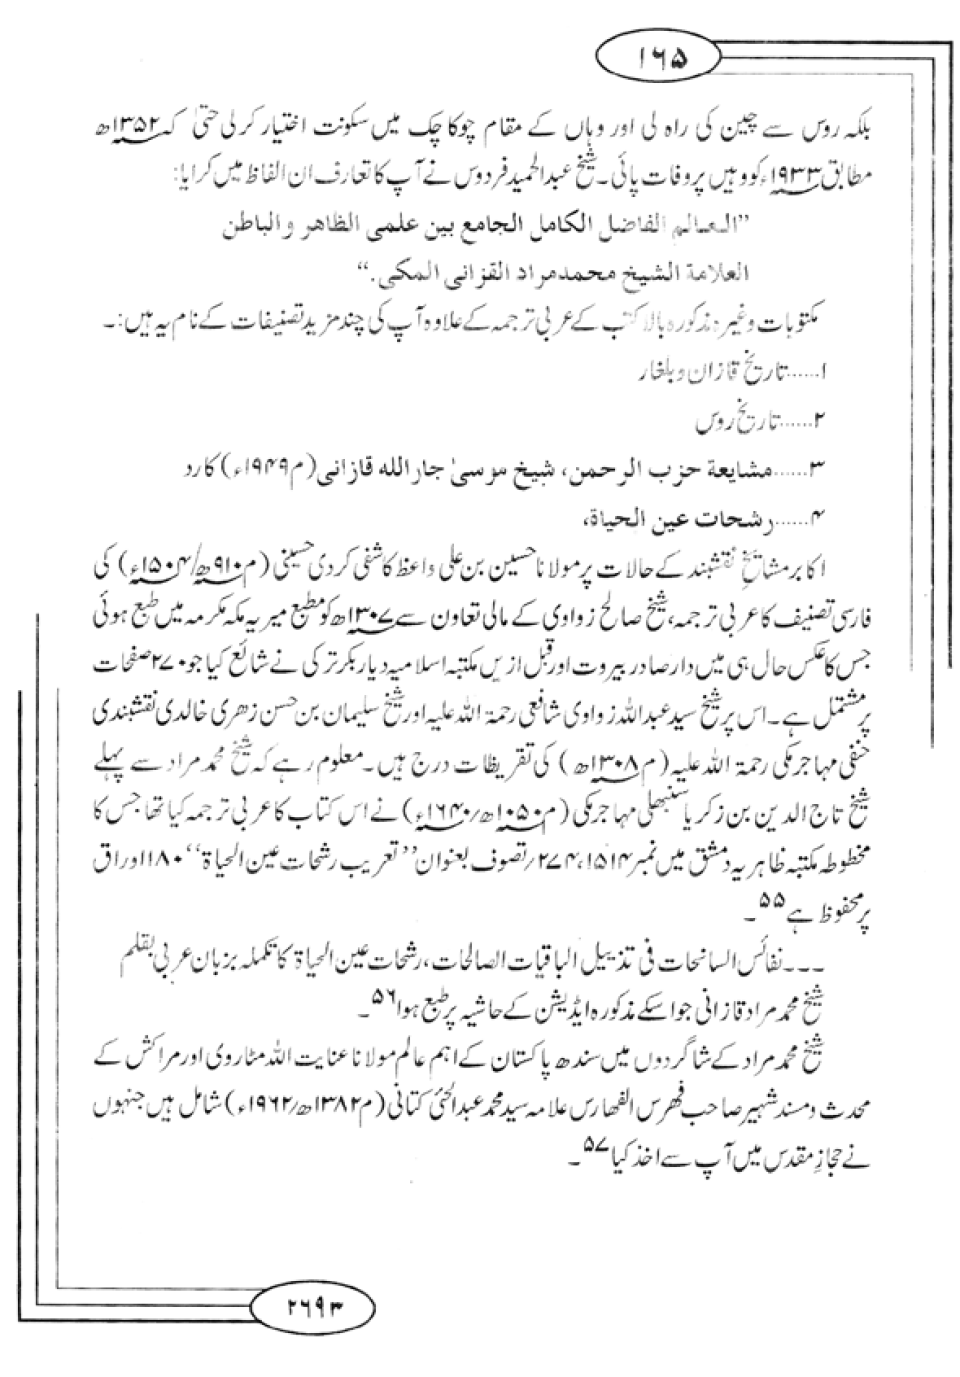 ۱۶۵
بلکہ روس سے چین کی راہ لی اور وہاں کے مقام چوکا چک میں سکونت اختیار کر لی حتیٰ کہ ۱۳۵۲ھ
مطابق ۱۹۳۳ء کو وہیں پر وفات پائی۔ شیخ عبدالحمید فردوس نے آپ کا تعارف ان الفاظ میں کرایا:
”العالم الفاضل الكامل الجامع بين علمى الظاهر والباطن
العلامة الشيخ محمد مراد القزانى المكى.“
مکتوبات وغیرہ مذکورہ بالا کتب کے عربی ترجمہ کے علاوہ آپ کی چند مزید تصنیفات کے نام یہ ہیں:۔
۱......تاریخ قازان و بلغار
۲......تاریخ روس
۳......مشایعة حزب الرحمن، شیخ موسیٰ جار اللہ قازانی (م ۱۹۴۹ء) کا رد
۴......رشحات عین الحیاة،
اکابر مشائخِ نقشبند کے حالات پر مولانا حسین بن علی واعظ کاشفی کردی حسینی (م ۹۱۰ھ/۱۵۰۴ء) کی
فارسی تصنیف کا عربی ترجمہ، شیخ صالح زواوی کے مالی تعاون سے ۱۳۰۷ھ کو مطبع میریہ مکہ مکرمہ میں طبع ہوئی
جس کا عکس حال ہی میں دار صادر بیروت اور قبل ازیں مکتبہ اسلامیہ دیار بکر ترکی نے شائع کیا جو ۲۷۰ صفحات
پر مشتمل ہے۔ اس پر شیخ سید عبداللہ زواوی شافعی رحمۃ اللہ علیہ اور شیخ سلیمان بن حسن زھری خالدی نقشبندی
حنفی مہاجر مکی رحمۃ اللہ علیہ (م ۱۳۰۸ھ) کی تقریظات درج ہیں۔ معلوم رہے کہ شیخ محمد مراد سے پہلے
شیخ تاج الدین بن زکریا سنبھلی مہاجر مکی (م ۱۰۵۰ھ/۱۶۴۰ء) نے اس کتاب کا عربی ترجمہ کیا تھا جس کا
مخطوطہ مکتبہ ظاہریہ دمشق میں نمبر ۱۵۱۴، ۲۷۴/تصوف بعنوان ”تعریب رشحات عین الحیاة“ ۱۸۰ اوراق
پر محفوظ ہے ۵۵۔
۔۔۔نفائس السانحات فی تذییل الباقیات الصالحات، رشحات عین الحیاة کا تکملہ بزبان عربی بقلم
شیخ محمد مراد قازانی جو اسکے مذکورہ ایڈیشن کے حاشیہ پر طبع ہوا ۵۶۔
شیخ محمد مراد کے شاگردوں میں سندھ پاکستان کے اہم عالم مولانا عنایت اللہ مٹاروی اور مراکش کے
محدث و مسند شہیر صاحب فھرس الفھارس علامہ سید محمد عبدالحئی کتانی (م ۱۳۸۲ھ/۱۹۶۲ء) شامل ہیں جنہوں
نے حجازِ مقدس میں آپ سے اخذ کیا ۵۷۔
۲۶۹۳